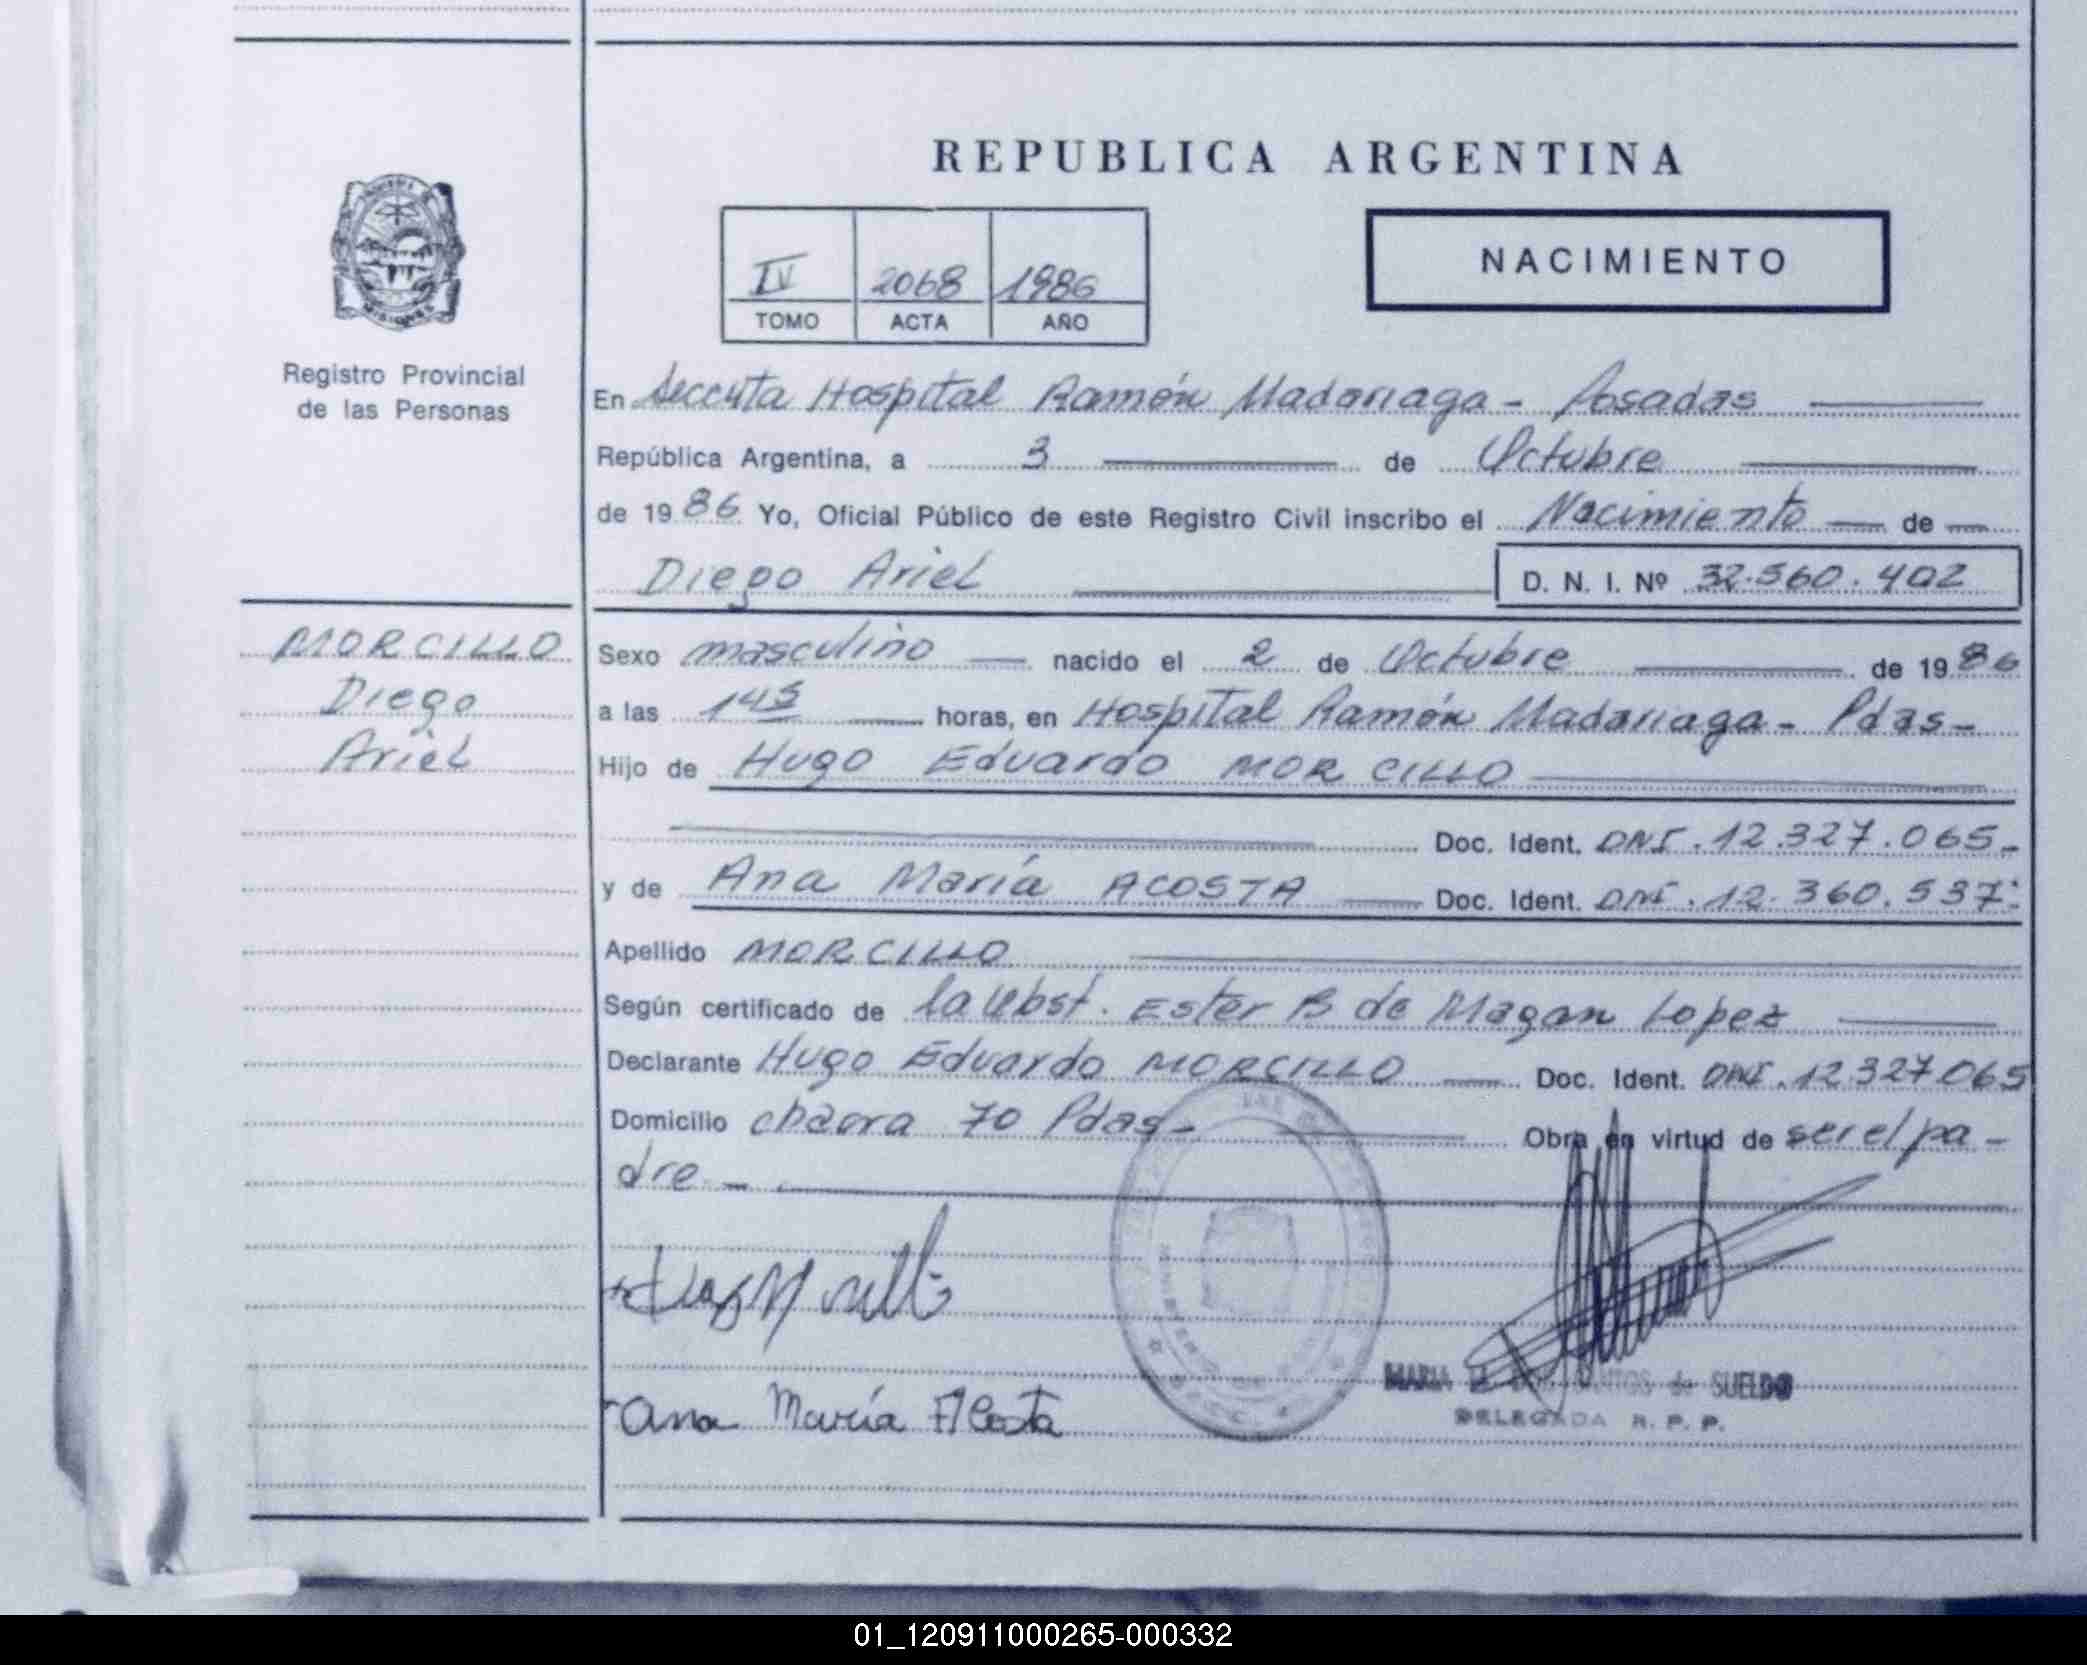 REPUBLICA ARGENTINA
NACIMIENTO
IV 2068 1986
TOMO ACTA AÑO
Registro Provincial
de las Personas
En Seccuta Hospital Ramón Madariaga - Posadas
República Argentina, a 3 de Octubre
de 1986 Yo, Oficial Público de este Registro Civil inscribo el Nacimiento de
Diego Ariel D. N. I. Nº 32.560.402
MORCILLO
Diego
Ariel
Sexo masculino nacido el 2 de Octubre de 1986
a las 14 horas, en Hospital Ramón Madariaga - Pdas -
Hijo de Hugo Eduardo MORCILLO
Doc. Ident. DNI. 12.327.065 -
y de Ana María ACOSTA Doc. Ident. DNI. 12.360.537
Apellido MORCILLO
Según certificado de la Obst. Ester B de Magan Lopez
Declarante Hugo Eduardo MORCILLO Doc. Ident. DNI. 12.327065
Domicilio chacra 70 Pdas - Obra en virtud de ser el pa -
dre -
Ana María Acosta
MARIA de SUELDO
DELEGADA R. P. P.
01_120911000265-000332